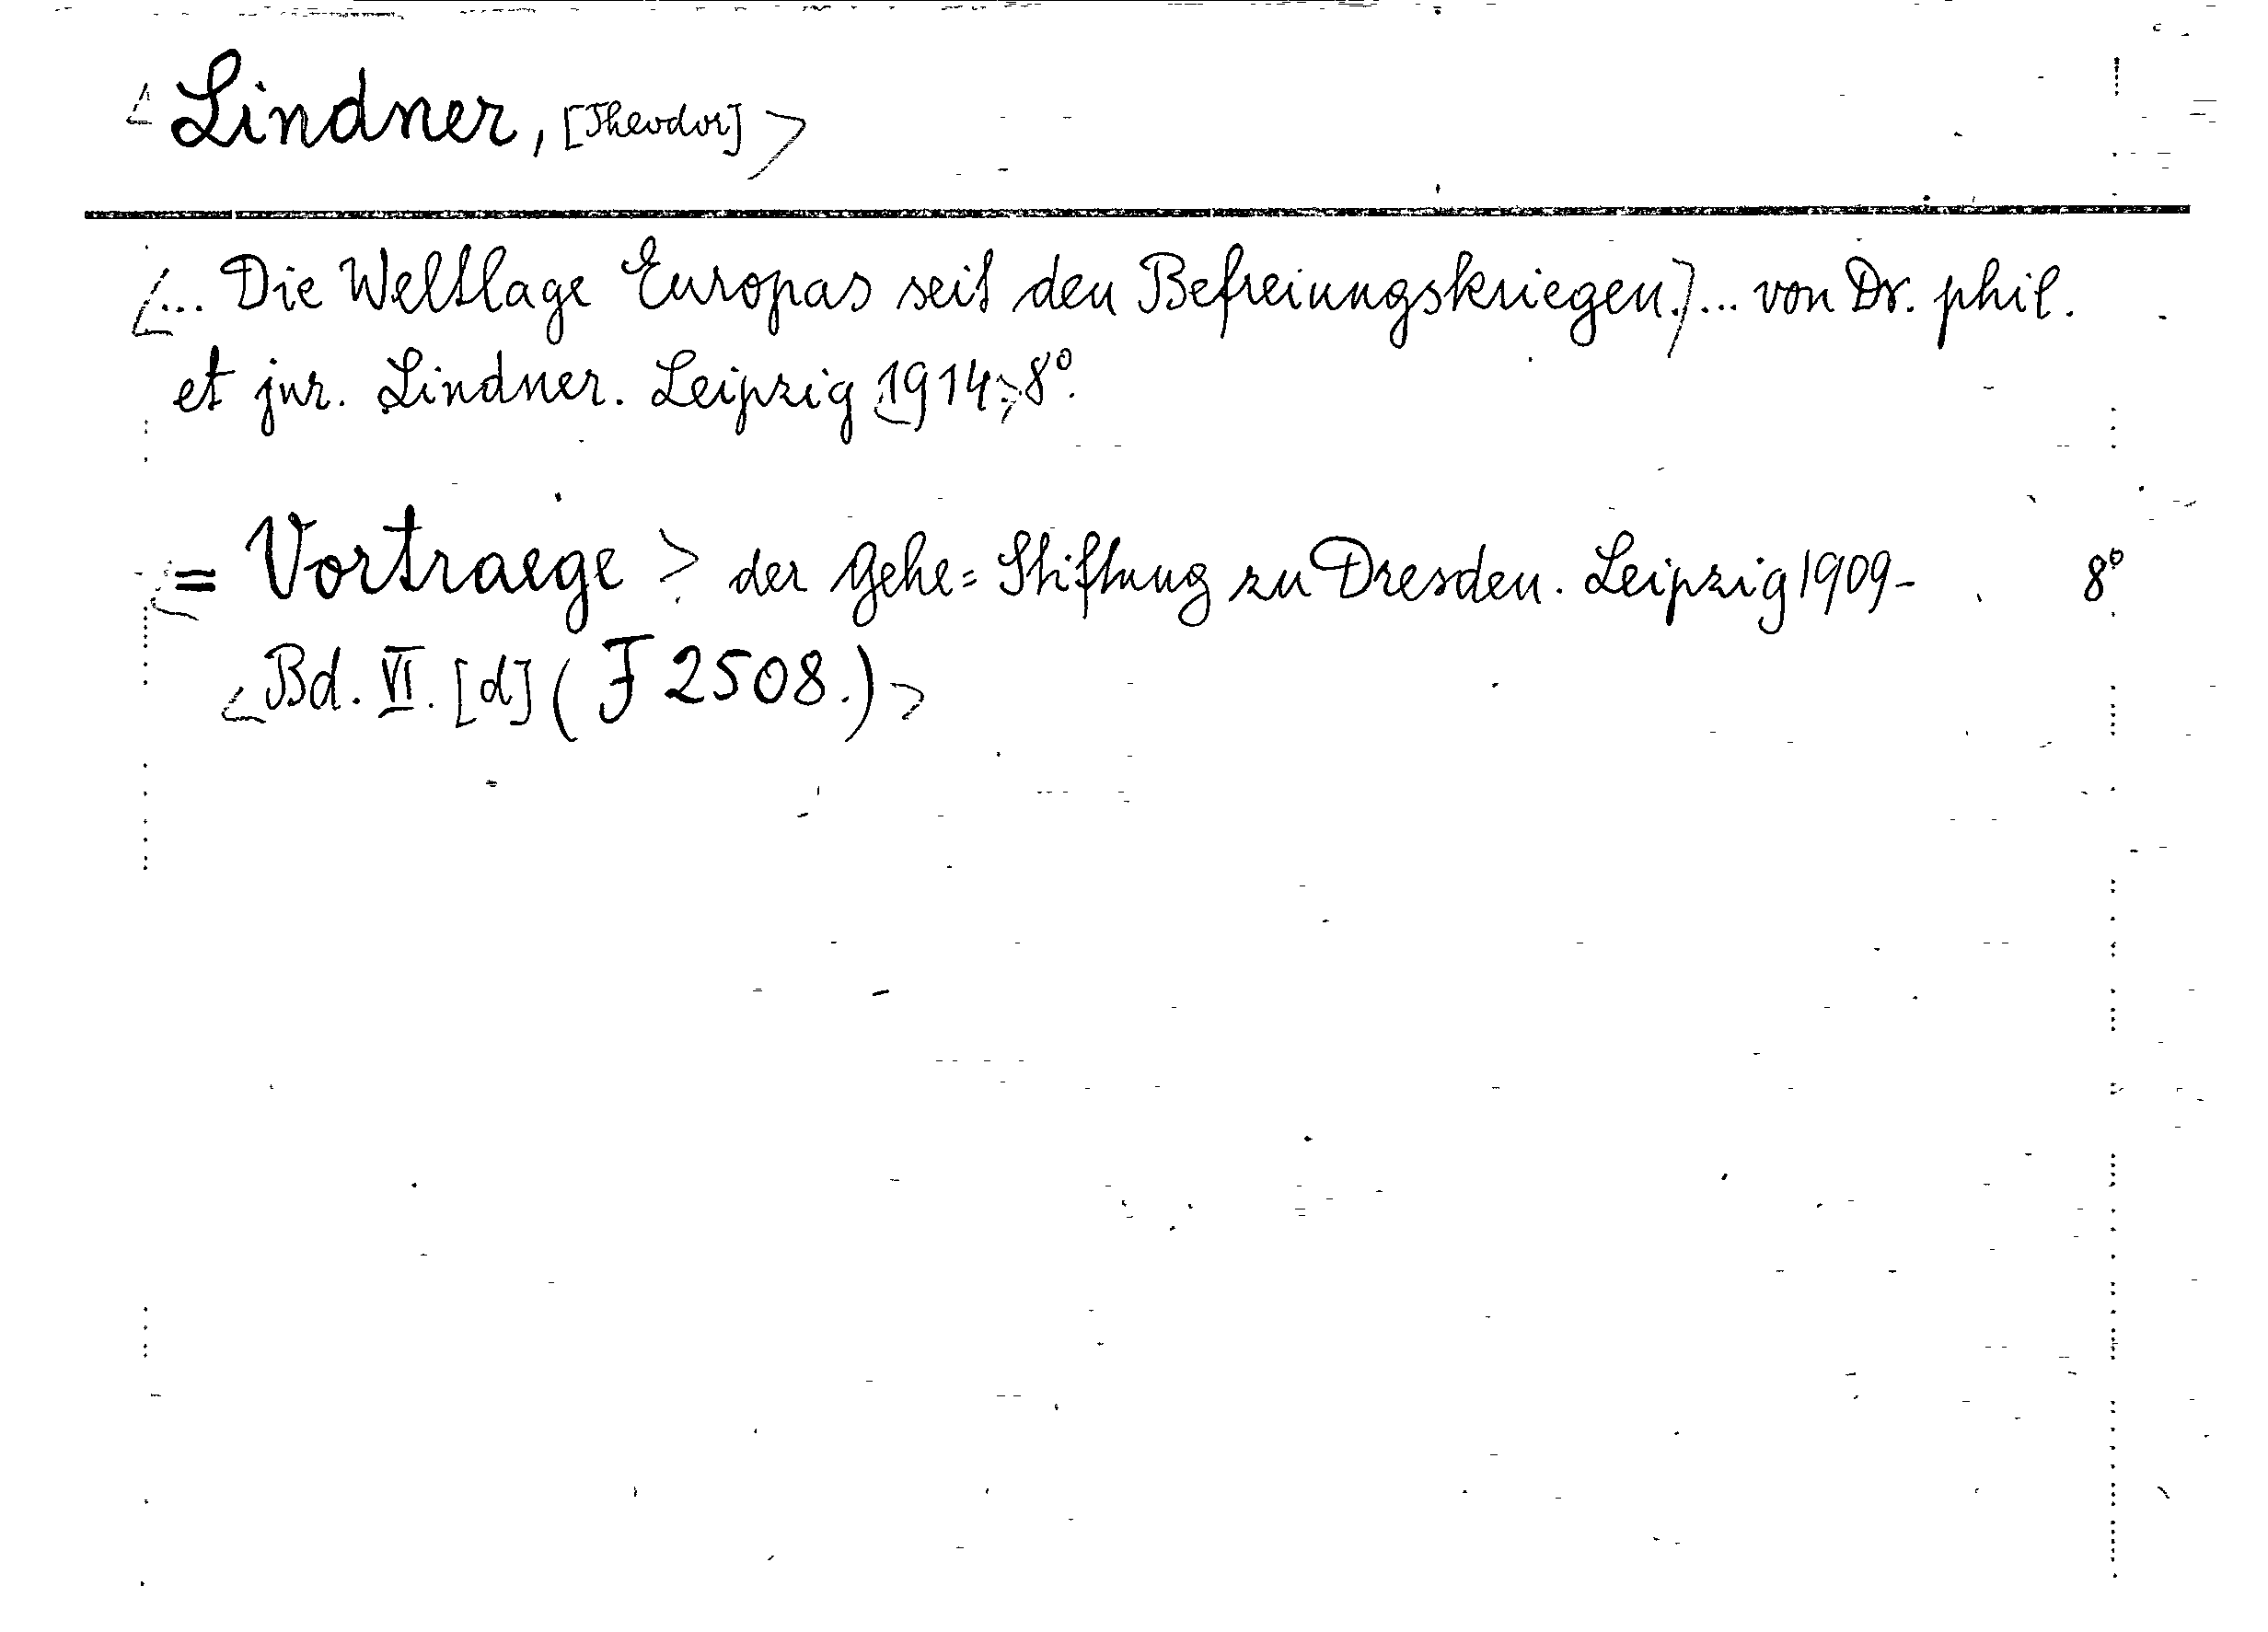 <Lindner, [Theodor]>
<... Die Weltlage Europas seit den Befreiungskriegen.>... von Dr. phil.
et jur. Lindner. Leipzig <1914.> 8°.
<= Vortraege > der Gehe=Stiftung zu Dresden. Leipzig 1909- . 8°
<Bd. VI. [d] (F 2508.)>